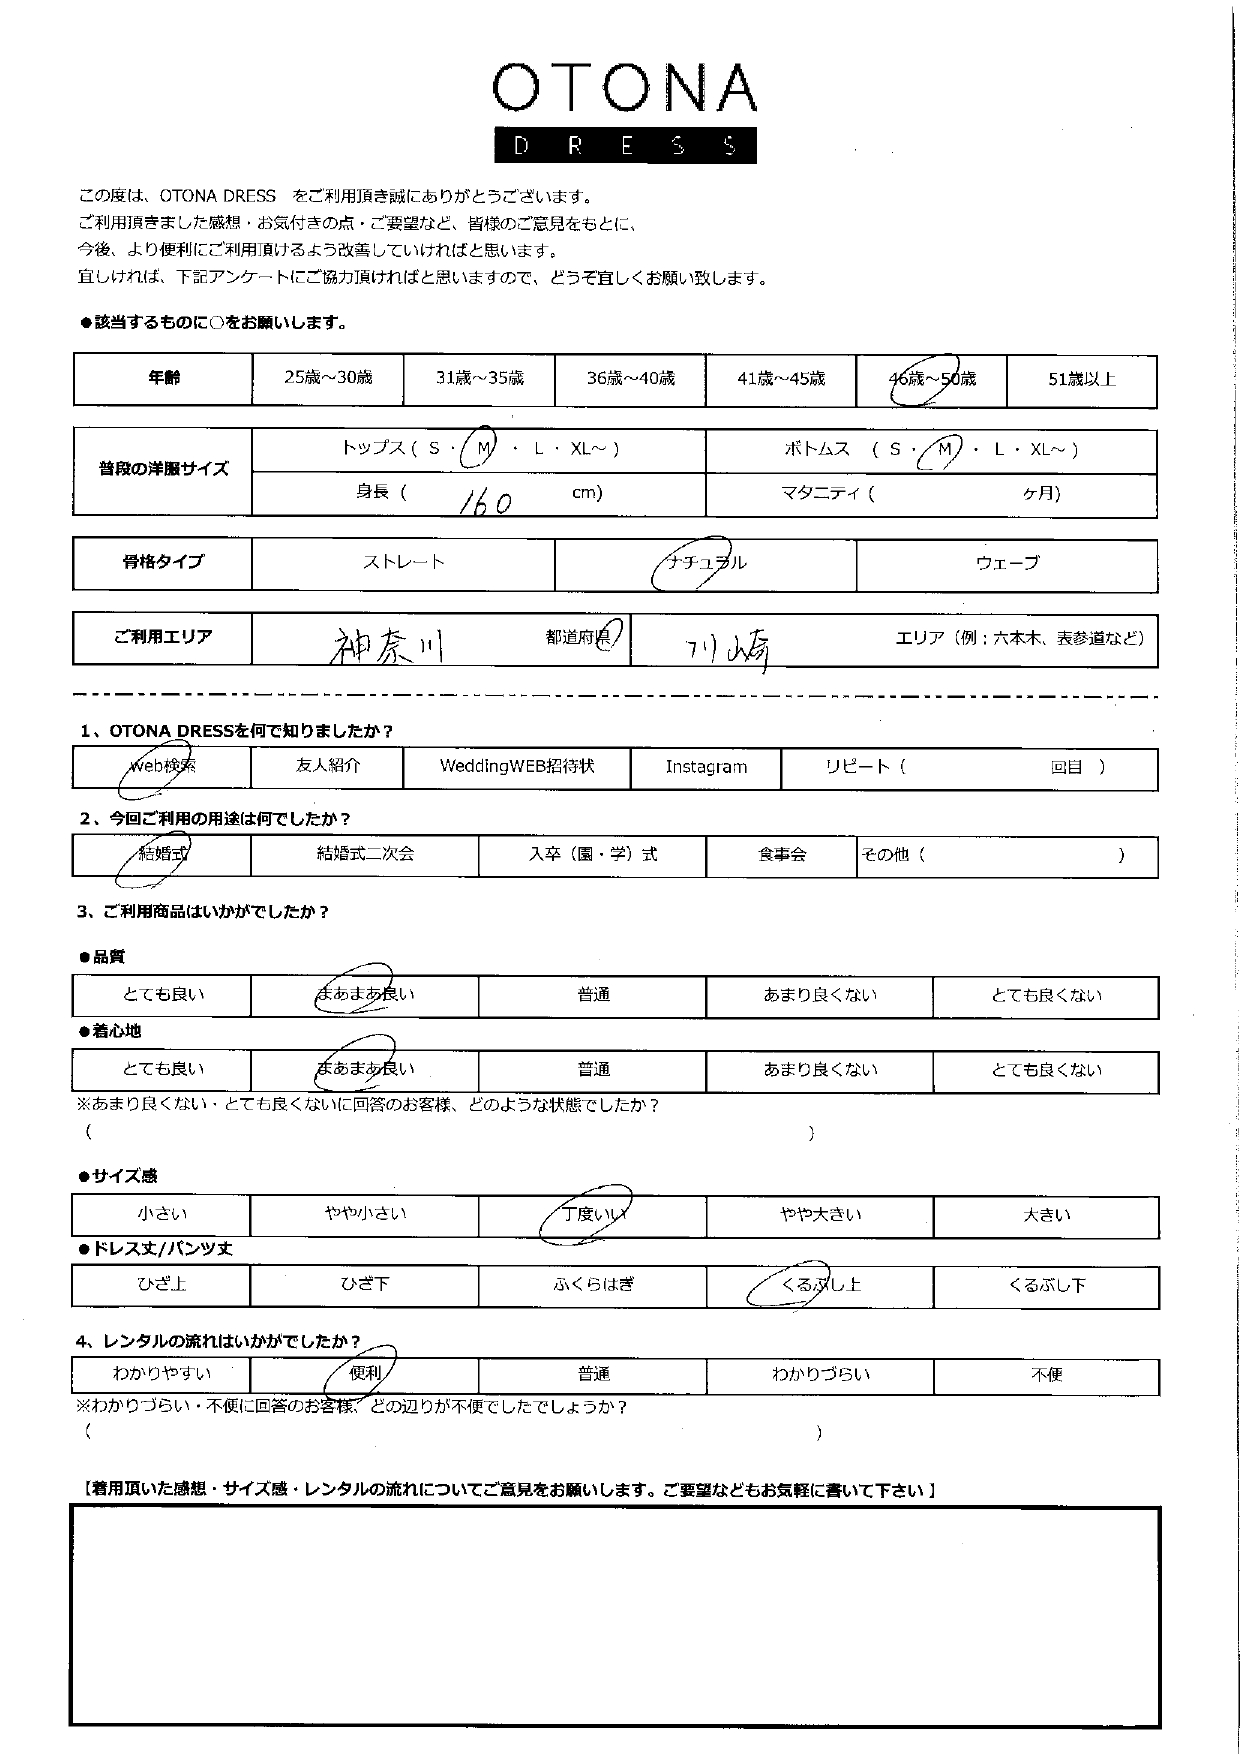 OTONA
DRESS
この度は、OTONA DRESS　をご利用頂き誠にありがとうございます。
ご利用頂きました感想・お気付きの点・ご要望など、皆様のご意見をもとに、
今後、より便利にご利用頂けるよう改善していければと思います。
宜しければ、下記アンケートにご協力頂ければと思いますので、どうぞ宜しくお願い致します。
●該当するものに○をお願いします。
年齢 25歳～30歳 31歳～35歳 36歳～40歳 41歳～45歳 46歳～50歳 51歳以上
普段の洋服サイズ トップス ( S ・ M ・ L ・ XL～ ) ボトムス ( S ・ M ・ L ・ XL～ )
身長 ( 160 cm) マタニティ ( ヶ月)
骨格タイプ ストレート ナチュラル ウェーブ
ご利用エリア 神奈川 都道府県 川崎 エリア（例；六本木、表参道など）
1、OTONA DRESSを何で知りましたか？
web検索 友人紹介 WeddingWEB招待状 Instagram リピート ( 回目 )
2、今回ご利用の用途は何でしたか？
結婚式 結婚式二次会 入卒（園・学）式 食事会 その他 ( )
3、ご利用商品はいかがでしたか？
●品質
とても良い まあまあ良い 普通 あまり良くない とても良くない
●着心地
とても良い まあまあ良い 普通 あまり良くない とても良くない
※あまり良くない・とても良くないに回答のお客様、どのような状態でしたか？
( )
●サイズ感
小さい やや小さい 丁度いい やや大きい 大きい
●ドレス丈/パンツ丈
ひざ上 ひざ下 ふくらはぎ くるぶし上 くるぶし下
4、レンタルの流れはいかがでしたか？
わかりやすい 便利 普通 わかりづらい 不便
※わかりづらい・不便に回答のお客様、どの辺りが不便でしたでしょうか？
( )
【着用頂いた感想・サイズ感・レンタルの流れについてご意見をお願いします。ご要望などもお気軽に書いて下さい】